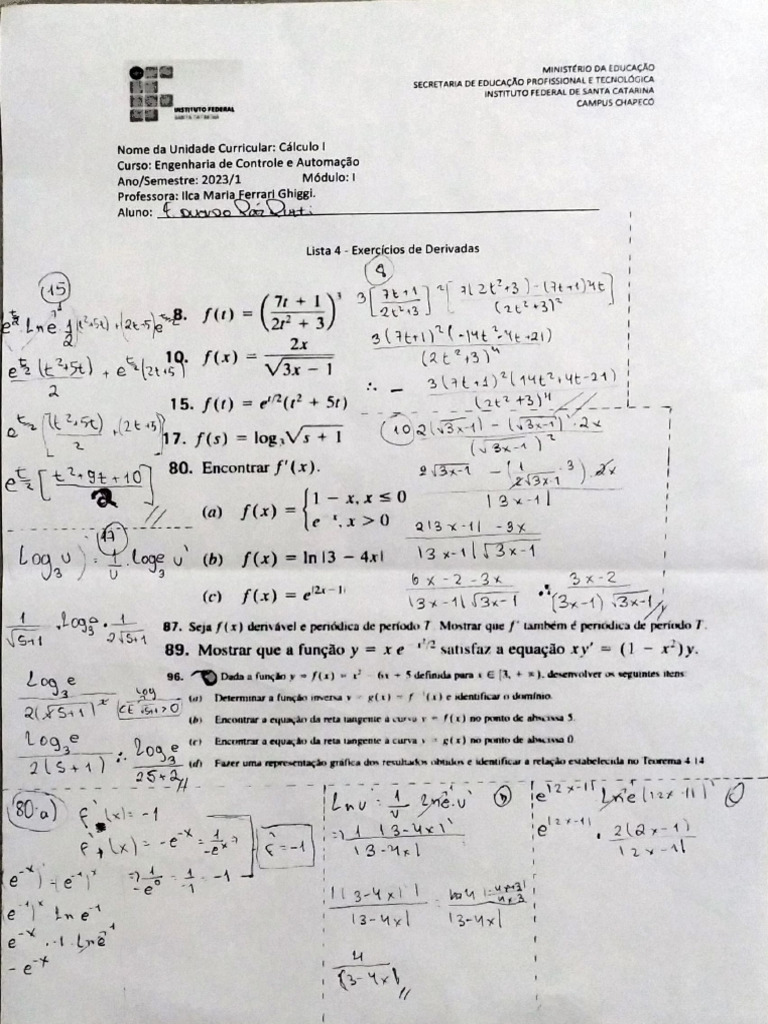 INSTITUTO FEDERAL
MINISTÉRIO DA EDUCAÇÃO
SECRETARIA DE EDUCAÇÃO PROFISSIONAL E TECNOLÓGICA
INSTITUTO FEDERAL DE SANTA CATARINA
CAMPUS CHAPECÓ
Nome da Unidade Curricular: Cálculo I
Curso: Engenharia de Controle e Automação
Ano/Semestre: 2023/1 Módulo: I
Professora: Ilca Maria Ferrari Ghiggi.
Aluno:
Lista 4 - Exercícios de Derivadas
8. f(t) = ((7t + 1)/(2t² + 3))³
10. f(x) = 2x/√(3x − 1)
15. f(t) = e^(t/2)(t² + 5t)
17. f(s) = log₃√(s + 1)
80. Encontrar f'(x).
(a) f(x) = {1 − x, x ≤ 0
e^-x, x > 0
(b) f(x) = ln |3 − 4x|
(c) f(x) = e^|2x − 1|
87. Seja f(x) derivável e periódica de período T. Mostrar que f' também é periódica de período T.
89. Mostrar que a função y = x e^(−x²/2) satisfaz a equação xy' = (1 − x²)y.
96. Dada a função y = f(x) = x² − 6x + 5 definida para x ∈ [3, + ∞), desenvolver os seguintes itens:
(a) Determinar a função inversa y = g(x) = f⁻¹(x) e identificar o domínio.
(b) Encontrar a equação da reta tangente à curva y = f(x) no ponto de abscissa 5.
(c) Encontrar a equação da reta tangente à curva y = g(x) no ponto de abscissa 0.
(d) Fazer uma representação gráfica dos resultados obtidos e identificar a relação estabelecida no Teorema 4.14
8
3[(7t+1)/(2t²+3)]² [7(2t²+3) − (7t+1)4t]/(2t²+3)²
3(7t+1)²(-14t²-4t+21)/(2t²+3)⁴
∴ − 3(7t+1)²(14t²+4t-21)/(2t²+3)⁴
10
2(√3x-1) − (√3x-1)' · 2x/(√3x-1)²
2√3x-1 − (1/2√3x-1 · 3) · 2x/|3x-1|
2|3x-1| − 3x/|3x-1|√3x-1
6x-2-3x/|3x-1|√3x-1 ∴ 3x-2/(3x-1)√3x-1
15
e^(t/2) · Ln e · 1/2 (t²+5t) + (2t+5)e^(t/2)
e^(t/2)(t²+5t)/2 + e^(t/2)(2t+5)
e^(t/2)[(t²+5t)/2 + (2t+5)]
e^(t/2)[(t²+9t+10)/2]
17
Log₃u' = 1/u · Log₃e u'
1/√s+1 · Log₃e · 1/2√s+1
Log₃e/2(√s+1)²
Log₃e/2(s+1) ∴ Log₃e/2s+2
80.a)
f'(x) = -1
f'+(x) = -e^-x = 1/-e^x
⇒ 1/-e⁰ = 1/-1 = -1
f' = -1
(e^-x)' = (e^-1)^x
(e^-1)^x Ln e^-1
e^-x · -1 · Ln e
-e^-x
b
Ln u' = 1/u · u'
⇒ 1/|3-4x| |3-4x|'
1(|3-4x|)'/|3-4x|
4/|3-4x|
c
e^|2x-1| Ln e (|2x-1|)'
e^|2x-1| · 2(2x-1)/|2x-1|